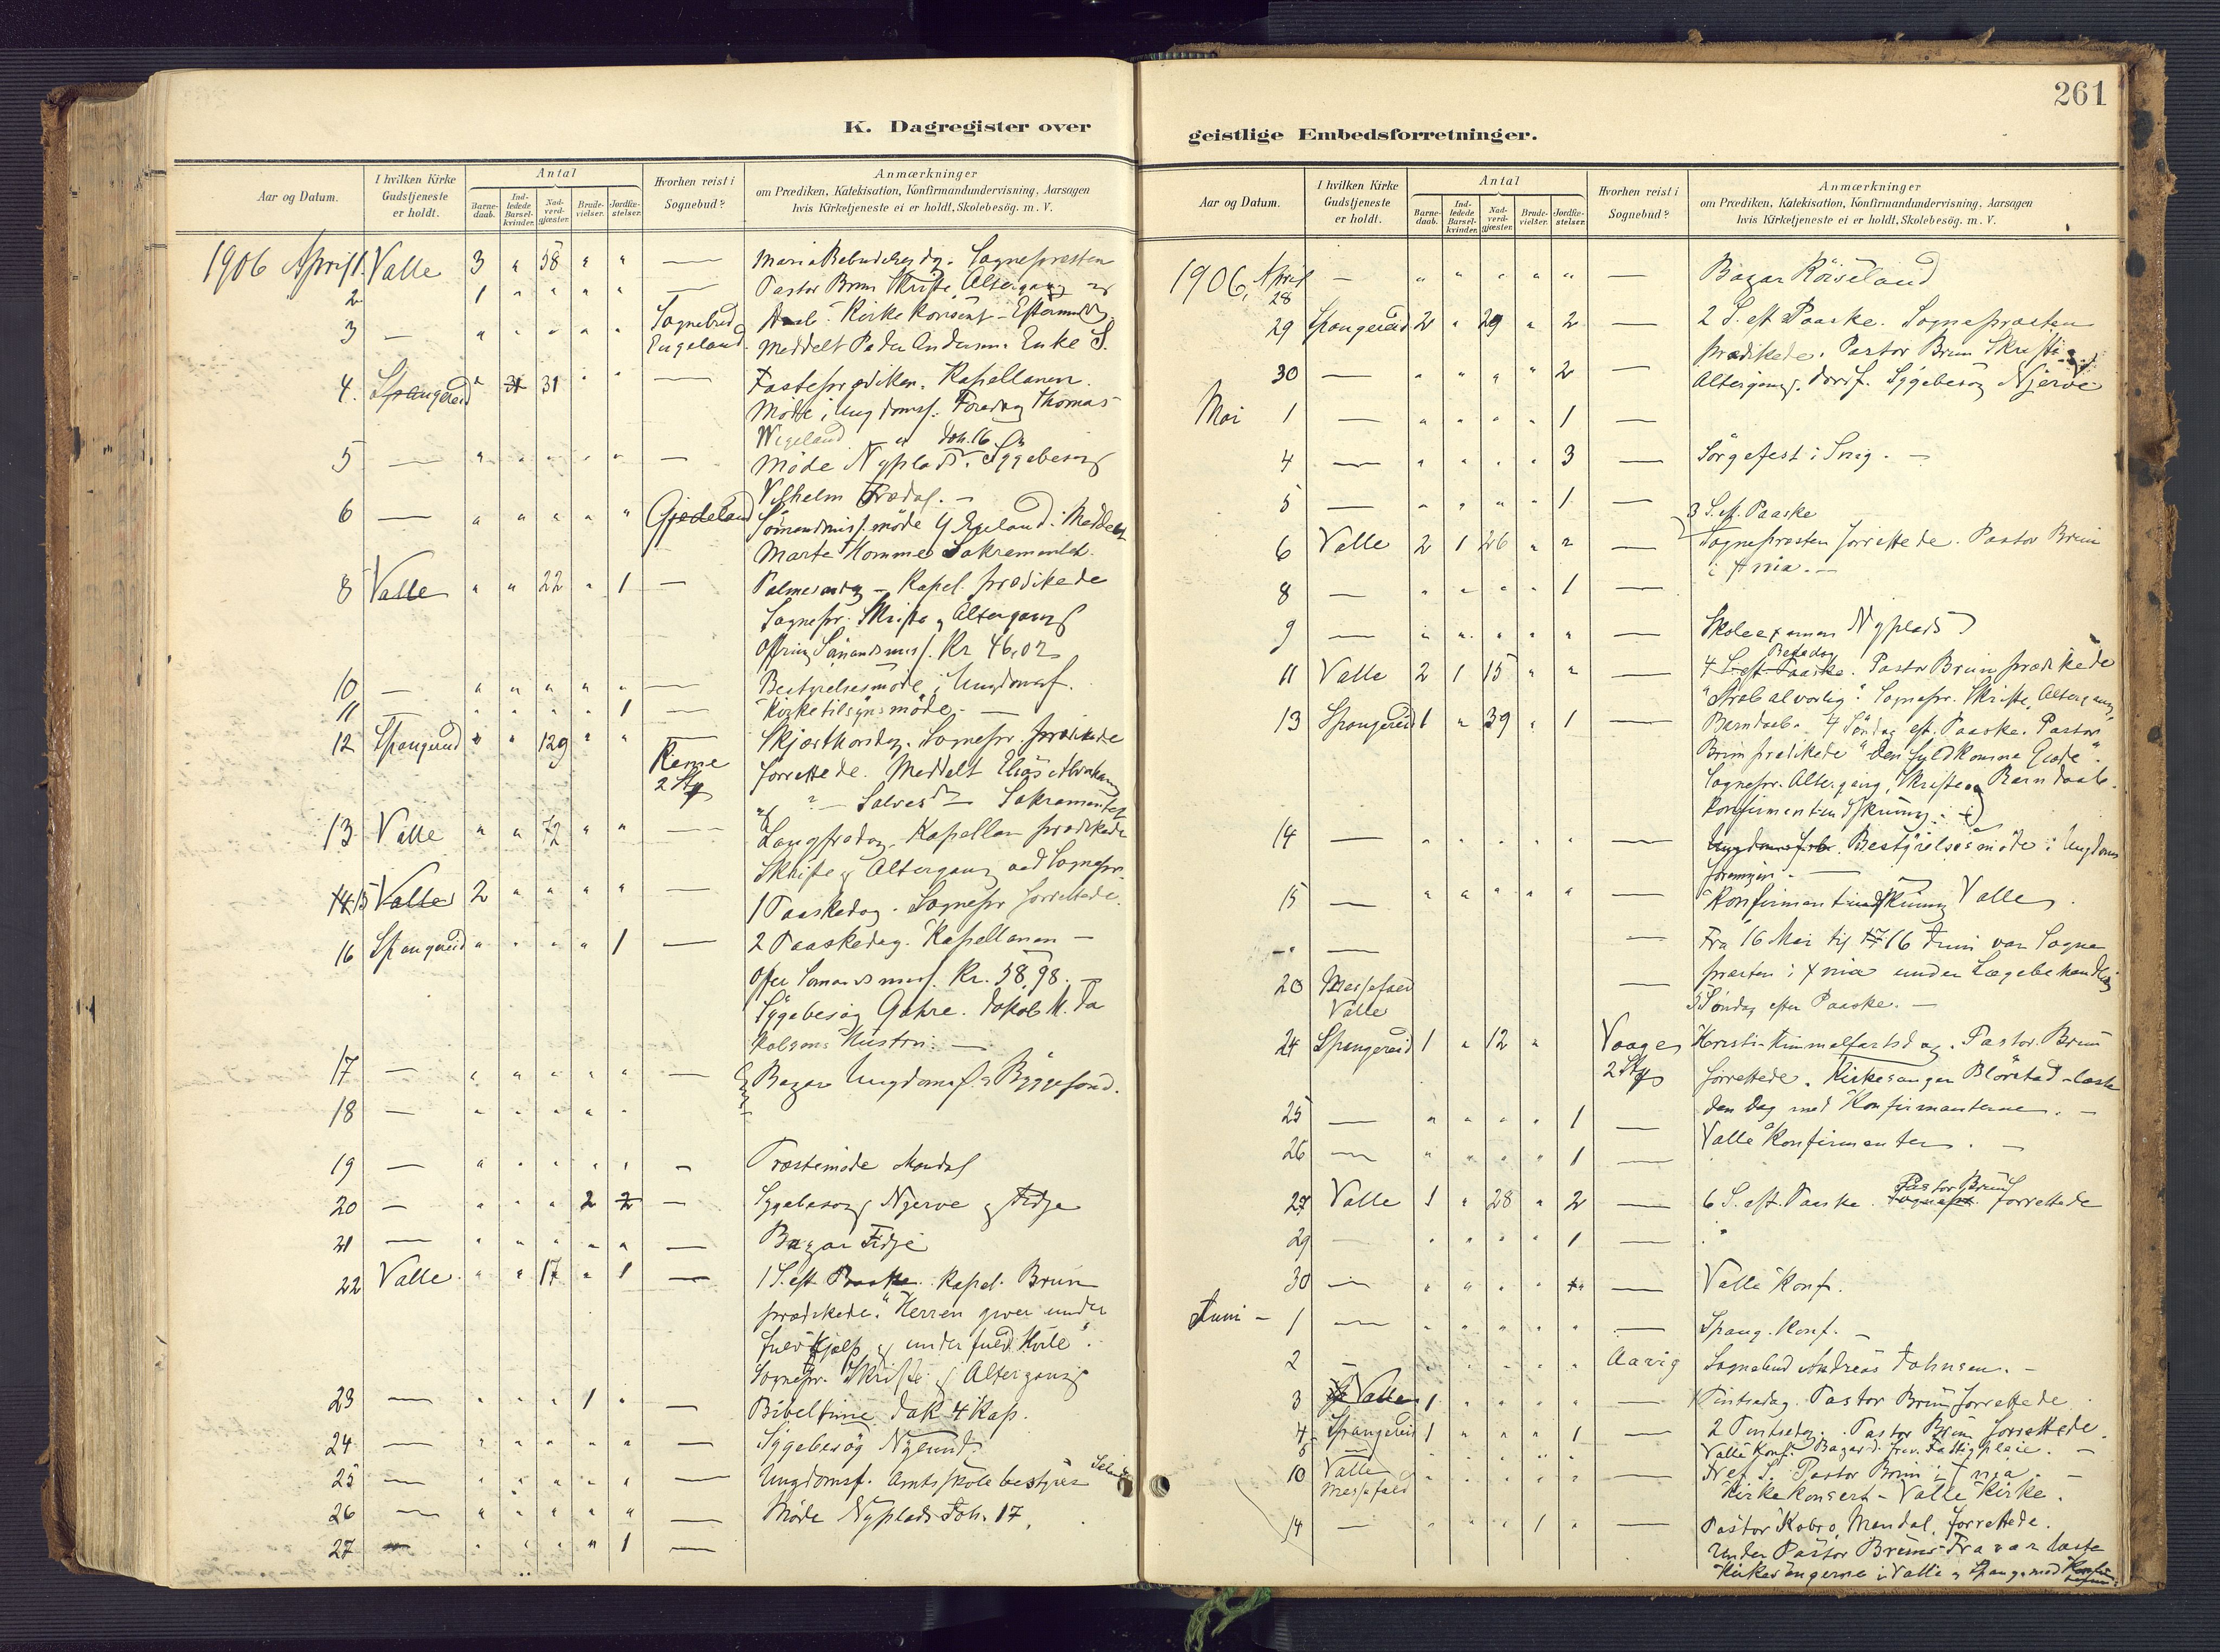 K. Dagregister over
Aar og Datum.
I hvilken Kirke Gudstjeneste er holdt.
Antal
Barnedaab.
Indledede Barselkvinder.
Nadverdgjæster.
Brudevielser.
Jordfæstelser.
Hvorhen reist i Sognebud?
Anmærkninger
om Prædiken, Katekisation, Konfirmandundervisning, Aarsagen
hvis Kirketjeneste ei er holdt, Skolebesög. m. V.
1906 April 1. Valle 3 " 58 " " — Maria Bebudelses dg. Sognepresten
2 1 " " " " — Pastor Brun Skrifte, Altergang og
Daab. Kirkekonsert - Efterm.
3 — " " " " " Sognebud Engeland Meddelt Peder Andersens Enke S.
4. Spangereid " 31 31 " " — Fasteprædiken. Kapellanen.
Möde i Ungdomsf. Foredrag Thomas
Wigeland Joh. 16
5 — " " " " " — Möde Nyplads. Sygebesøg
Vilhelm
6 — " " " " " Gjedeland Sömandsmiss. möde Egeland. Meddelt
Marte Homme Sakramentet.
8 Valle " " 22 " 1 — Palmesøndag - Kapel. prædikede
Sognepr. Skrifte og Altergang
Offring Sömandsmiss. Kr 46,02
10 — " " " " " — Bestyrelsesmöde i Ungdomsf.
11 — " " " " 1 — Kirketilsynsmöde. —
12 Spangereid " " 129 " " — Skjærthorsdag. Sognepr. prædikede
Reme 2 Stk forrettede. Meddelt Elias Abraham
Salves Sakramentet
13 Valle " " 72 " " — Langfredag. Kapellan prædikede
Skrifte og Altergang ved Sognepr.
14 15 Valle 2 " " " " — 1 Paaskedag. Sognepr forrettede.
16 Spangereid " " " " 1 — 2 Paaskedag. Kapellanen —
Offer Sömandsmiss. Kr. 58,98. —
Sygebesög Gahre. Jakob M. Ja
kobsens Hustru. —
17 — " " " " " — Bazar Ungdomsf. Byggefond.
18 — " " " " "
19 — " " " " " — Prestemöde Mandal
20 — " " " 2 2 — Sygebesøg Njerve og Fidje
21 — " " " " " — Bazar Fidje
22 Valle " " 17 " 1 — 1 S. eft Paaske. Kapel. Brun
prædikede. "Herren giver under
fuld Hjælp og under fuld Hvile".
Sognepr. Skrifte og Altergang
23 — " " " 1 " — Bibeltime Jak 4 Kap.
24 — " " " " " — Sygebesög
25 — " " " " " — Ungdomsf. Amtsskole bestyrer
26 — " " " " " — Möde Nyplads Joh. 17.
27 — " " " " 1 —
261
geistlige Embedsforretninger.
Aar og Datum.
I hvilken Kirke Gudstjeneste er holdt.
Antal
Barnedaab.
Indledede Barselkvinder.
Nadverdgjæster.
Brudevielser.
Jordfæstelser.
Hvorhen reist i Sognebud?
Anmærkninger
om Prædiken, Katekisation, Konfirmandundervisning, Aarsagen
hvis Kirketjeneste ei er holdt, Skolebesög. m. V.
1906, April 28 — " " " " " — Bazar Röiseland
29 Spangereid 2 " 29 " 2 — 2 S. eft Paaske. Sognepræsten
prædikede. Pastor Brun Skrifte og
30 — " " " " 2 — Altergang. Jordf. Sygebesøg Njerve
Mai 1 — " " " " 1 —
4 — " " " " 3 — Sörgefest i Snig. —
5 — " " " " 1 —
3 S. ef. Paaske
6 Valle 2 1 26 " " — Sognepræsten forrettede. Pastor Brun
i Xnia. —
8 — " " " " 1 —
9 — " " " " " — Skoleexamen Nyplads
Bededag
11 Valle 2 1 15 " " — 4 S. eft Paaske. Pastor Brun prædikede
Sognepr. Skrifte, Altergang,
13 Spangereid 1 " 39 " 1 — Barndaab. 4 Söndag eft. Paaske. Pastor
Brun prædikede "Den fuldkomne Glæde".
Sognepr. Altergang, Skrifte og Barndaab.
Konfirmantindskrivning.
14 — " " " " " — Bestyrelsesmöde i Ungdoms
foreningen. —
15 — " " " " " — Konfirmantindskrivning Valle.
— — Fra 16 Mai til 17 16 Juni var Sogne
præsten i Xnia under Lægebehandling
20 Messefald Valle — 5 Söndag efter Paaske. —
24 Spangereid 1 " 12 " Vaage 2 Stk Kristi-Himmelfartsdag. Pastor Brun
forrettede. Kirkesanger Blörstad læste
25 — " " " " 1 — den Dag med Konfirmanterne. —
26 — " " " " 1 — Valle Konfirmanter. —
27 Valle 1 " 28 " 2 — 6 S. eft. Paaske. Sognepr. Pastor Brun forrettede
29 — " " " " 1 — "
30 — " " " " — Valle Konf.
Juni - 1 — " " " " " — Spang. Konf. —
2 — " " " " " Aavig Sognebud Andreas Johnsen. —
3 Valle 1 " " " " — 1 Pintsedag. Pastor Brun forrettede.
4 Spangereid 1 " " " 1 — 2 Pintsedag. Pastor Brun forrettede.
5 — " " " " Valle Konf. Bazar
10 Valle Messefald " " " " " — Tref. S. Pastor Brun i Xnia. —
Kirkekonsert - Valle Kirke.
14 — " " " 1 " — Pastor Kobro, Mandal, forrettede.
Under Pastor Bruns Fravær læste
Kirkesangerne i Valle og Spang. med